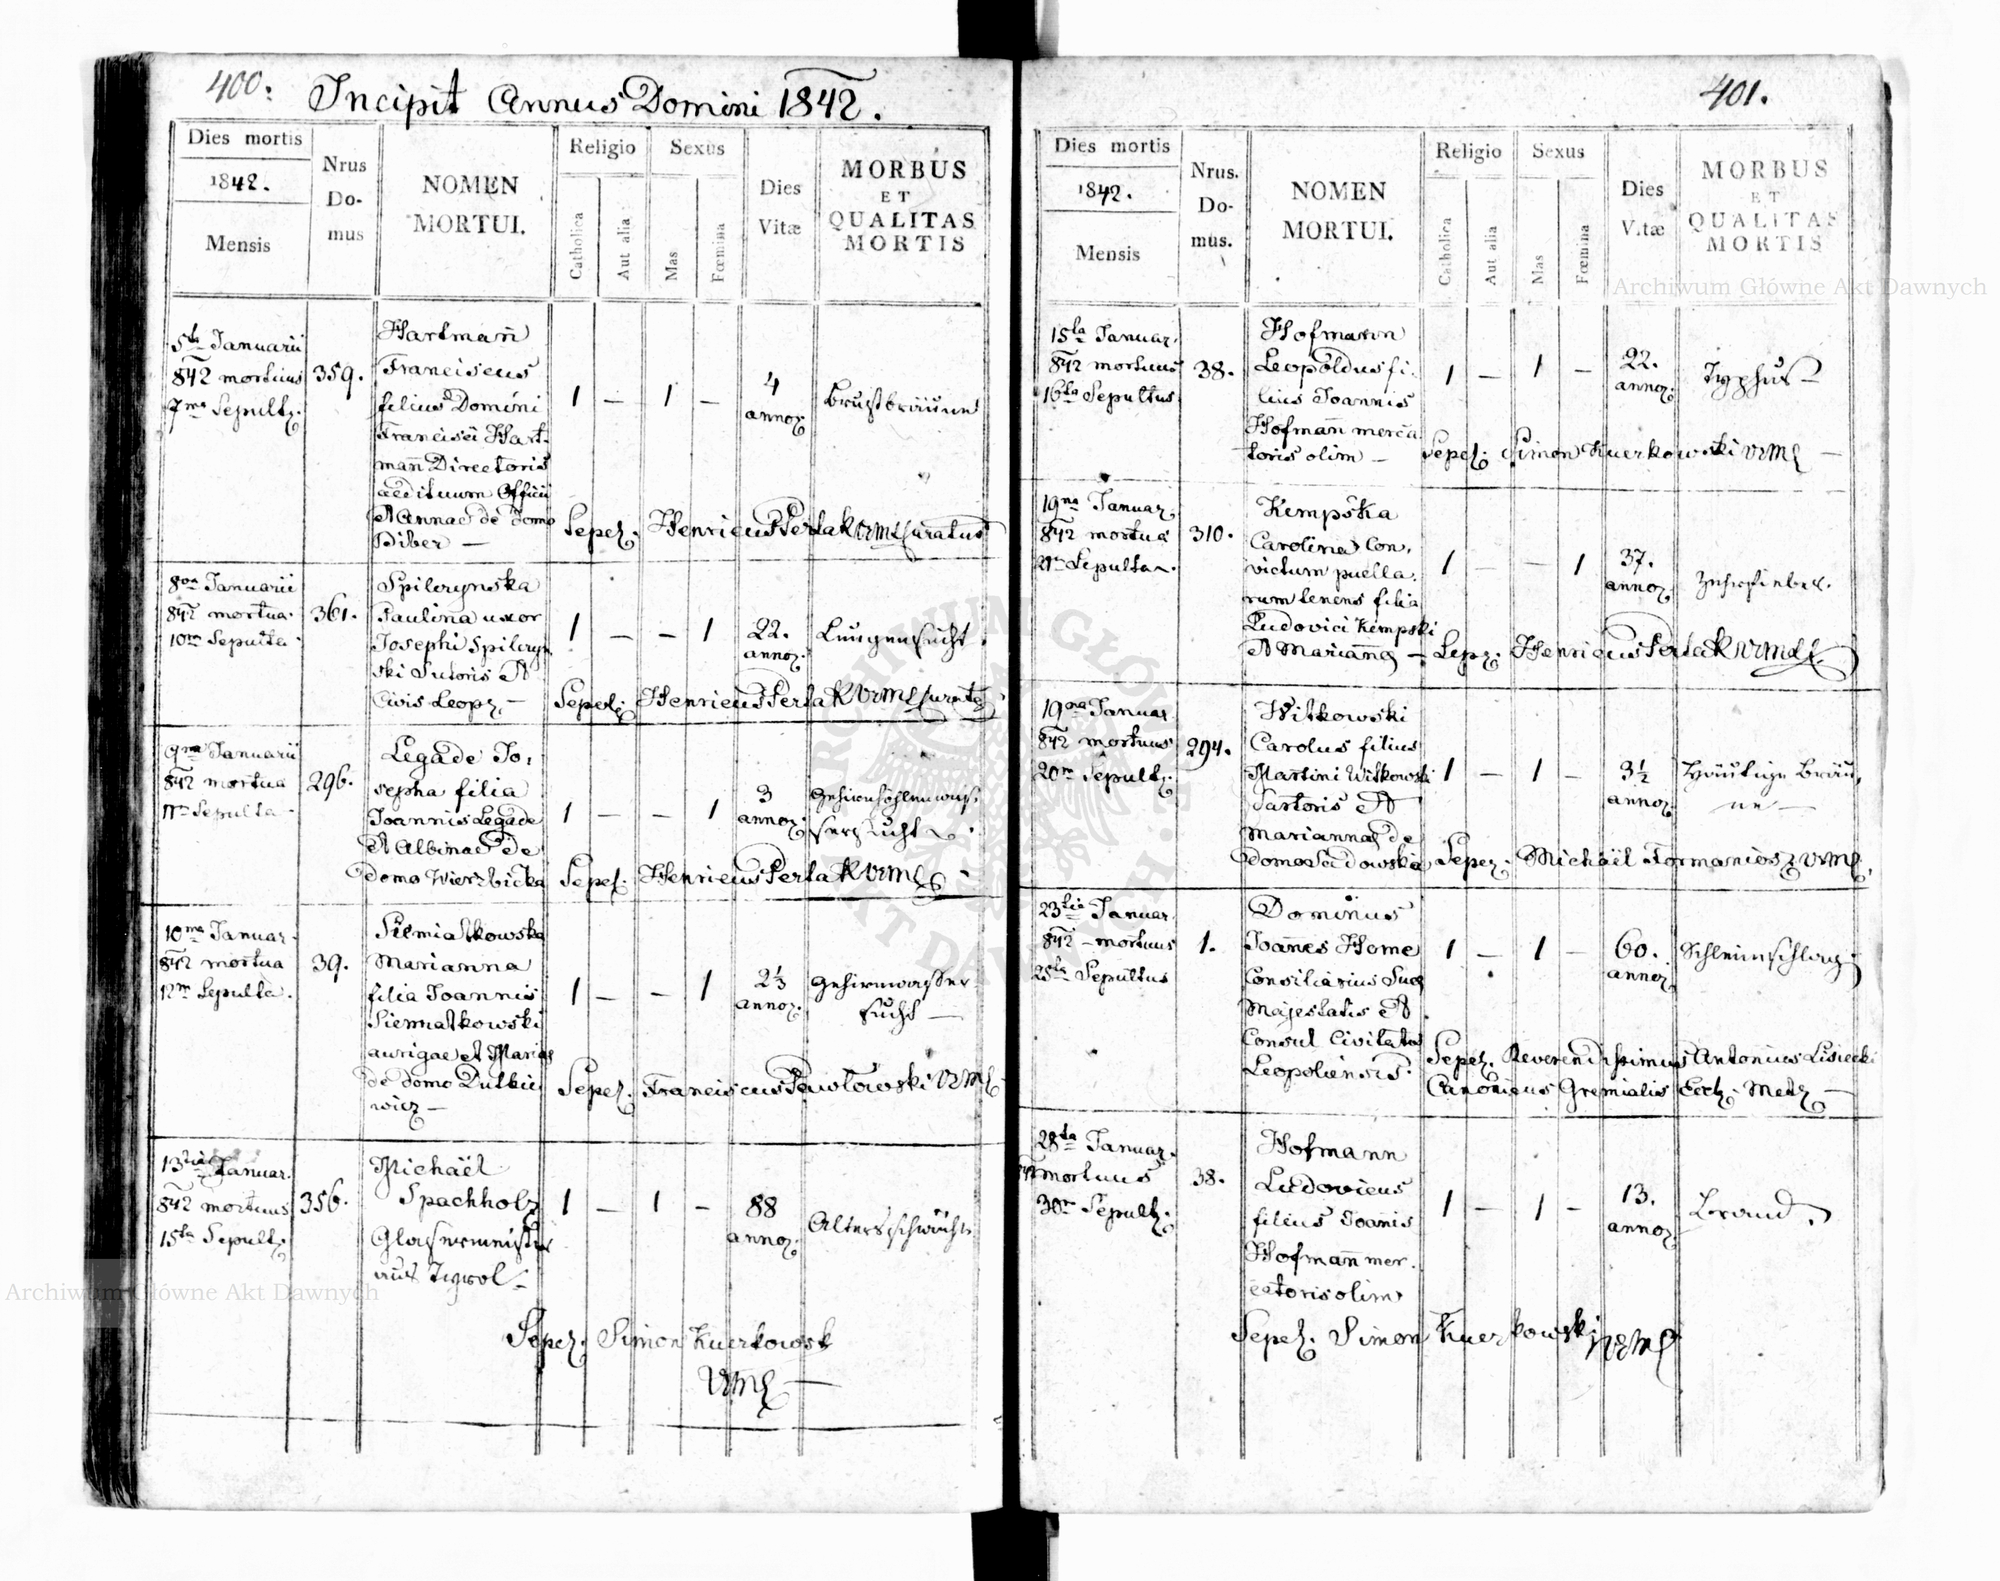 400.
Incipit Annus Domini 1842.
Dies mortis
1842.
Mensis
Nrus
Do-
mus
NOMEN
MORTUI.
Religio
Catholica
Aut alia
Sexus
Mas
Fœmina
Dies
Vitæ
MORBUS
ET
QUALITAS
MORTIS
5ta Januarii
842 mortuus
7ma Sepult.
359.
Hartman̄
Franciscus
filius Domini
Francisci Hart-
man̄ Directoris
aedituum Officii
et Annae de domo
Biber —
1 — 1 —
4
annor.
Brustbräune
Sepel. Henricus Perlak VRML Curatus
8va Januarii
842 mortua
10ma Sepulta
361.
Spilczynska
Paulina uxor
Josephi Spilczyn
ski Sutoris et
Civis Leopol. —
1 — — 1
22.
annor.
Lungensucht
Sepel. Henricus Perlak VRML Curatus
9na Januarii
842 mortua
11ma Sepulta
296.
Legade Jo-
sepha filia
Joannis Legade
et Albinae de
domo Wierzbicka
1 — — 1
3
annor.
Gehirnhöhlenwas-
sersucht
Sepel. Henricus Perlak VRML
10ma Januar.
842 mortua
12ma Sepulta.
39.
Siemiatkowska
Marianna
filia Joannis
Siemiatkowski
aurigae et Mariae
de domo Dutkie
wicz —
1 — — 1
2⅓
annor.
Gehirnwasser
sucht —
Sepel. Franciscus Pawlowski VRML
13tia Januar.
842 mortuus
15ta Sepult.
356.
Michaël
Spachholz
Glasermeister
aus Tyrol —
1 — 1 —
88
annor.
Altersschwäche
Sepel. Simon Kuerkowski
VRML —
401.
Dies mortis
1842.
Mensis
Nrus.
Do-
mus.
NOMEN
MORTUI.
Religio
Catholica
Aut alia
Sexus
Mas
Fœmina
Dies
Vitæ
MORBUS
ET
QUALITAS
MORTIS
15ta Januar.
842 mortuus
16ta Sepultus
38.
Hofmann
Leopoldus fi-
lius Joannis
Hofman̄ merca
toris olim —
1 — 1 —
22.
annor.
Typhus —
Sepel. Simon Kuerkowski VRML —
19na Januar.
842 mortua
21ma Sepulta
310.
Kempska
Carolina Con-
victum puella-
rum tenens filia
Ludovici Kempski
et Mariannae —
1 — — 1
37.
annor.
Zehrfieber.
Sepel. Henricus Perlak VRML
19na Januar
842 mortuus
20ma Sepult.
294.
Witkowski
Carolus filius
Martini Witkowski
Sartoris et
Mariannae de
domo Sadowska
1 — 1 —
3½
annor.
Häutige Bräu-
ne —
Sepel. Michaël Formaniosz VRML
23tia Januar.
842 – mortuus
25ta Sepultus
1.
Dominus
Joannes Home
Consiliarius Suae
Majestatis et
Consul Civitatis
Leopoliensis.
1 — 1 —
60.
annor.
Schleimschlag
Sepel. Reverendissimus Antonius Lisiecki
Canonicus Gremialis Eccl. Metr. —
28ta Januar.
842 mortuus
30ma Sepult.
38.
Hofmann
Ludovicus
filius Joannis
Hofman̄ mer-
catoris olim
1 — 1 —
13.
annor.
Brand.
Sepel. Simon Kuerkowski VRML
Archiwum Główne Akt Dawnych
Archiwum Główne Akt Dawnych
ARCHIWUM GŁÓWNE AKT DAWNYCH